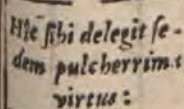 Hîc ſibi delegit ſe-
dem pulcherrima
virtus: